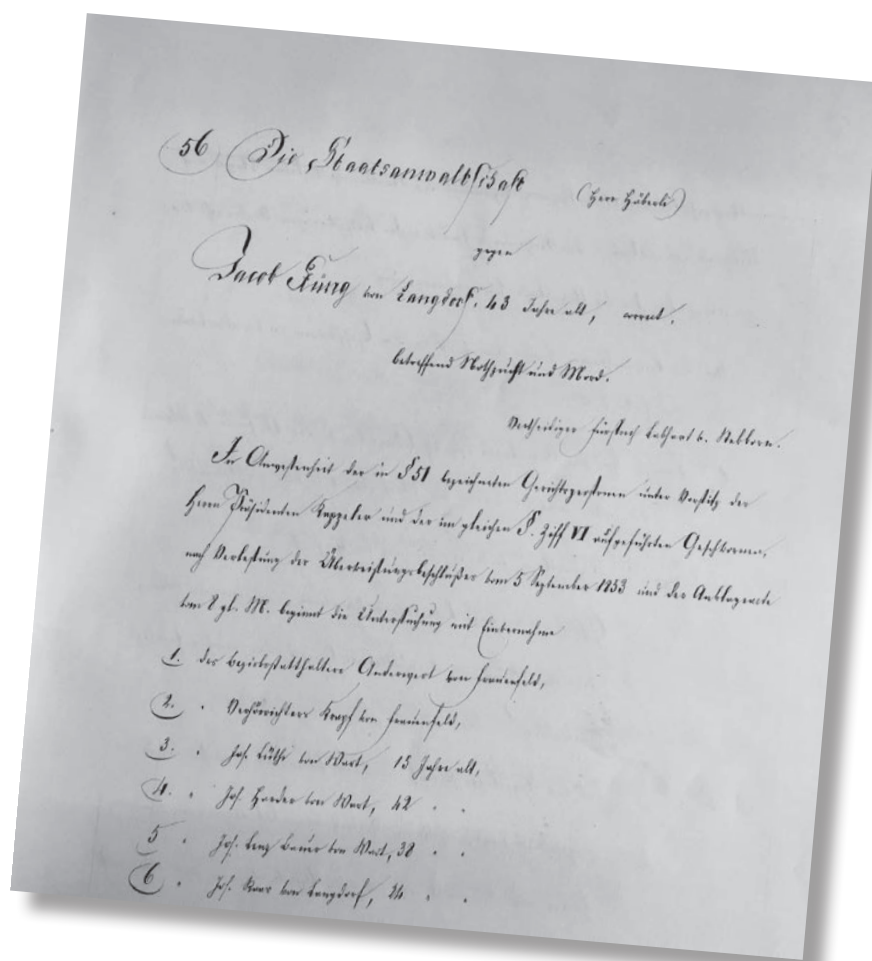 56 Die Staatsanwaltschaft
(Herr Häberli)
gegen
Jacob Küng von Langdorf, 43 Jahre alt, arrent.
betreffend Nothzucht und Mord.
Vertheidiger Fürsprech Labhart v. Steckborn.
In Anwesenheit der in § 51 bezeichneten Gerichtspersonen unter Vorsitz des
Herrn Präsidenten Kappeler und der im gleichen §. Ziff VI aufgeführten Geschwornen,
nach Verlesung des Überweisungsbeschlußes vom 5 September 1853 und der Anklageacte
vom 8 gl. M. beginnt die Untersuchung mit Einvernahme
1. des Bezirksstatthalters Anderwert von Frauenfeld,
2. " Verhörrichters Kropf von Frauenfeld,
3. " Joh. Lüthi von Wart, 13 Jahre alt,
4. " Joh. Harder von Wart, 42 " "
5 " Joh. Lenz Bauer von Wart, 38 " "
6 " Joh. von Langdorf, 24 " "